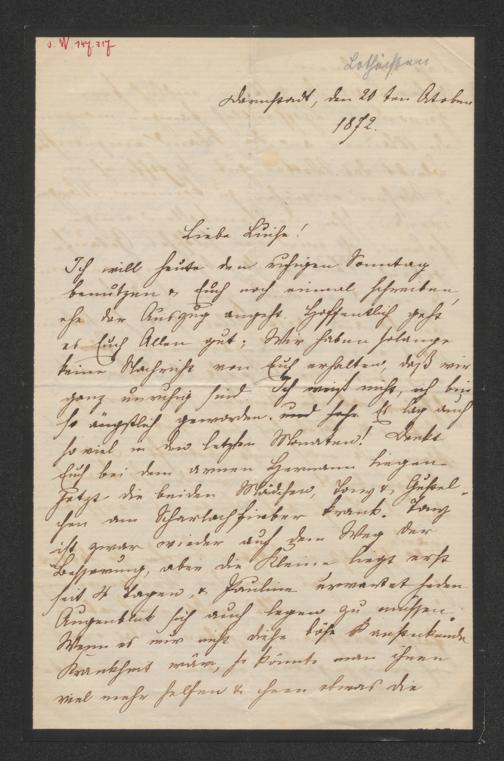 Darmstadt, den 20 ten Oktober
1872.
Liebe Luise!
Ich will heute den ruhigen Sonntag
benutzen & Euch noch einmal schreiben,
ehe der Auszug angeht. Hoffentlich geht
es Euch Allen gut; Wir haben solange
keine Nachricht von Euch erhalten, daß wir
ganz unruhig sind. Ich weiß nicht, ich bin
so ängstlich geworden. und Es lag auch
so viel in den letzten Monaten! Denkt
Euch bei dem armen Hermann liegen
jetzt die beiden Mädchen, Tony & Gustel-
chen am Scharlachfieber krank. Tony
ist zwar wieder auf dem Weg der
Besserung, aber die Kleine liegt erst
seit Tagen, & Pauline erwartet jeden
Augenblick sich auch legen zu müssen.
Wenn es nur nicht diese böse ansteckende
Krankheit wär, so könnte man ihnen
viel mehr helfen & ihnen etwas die